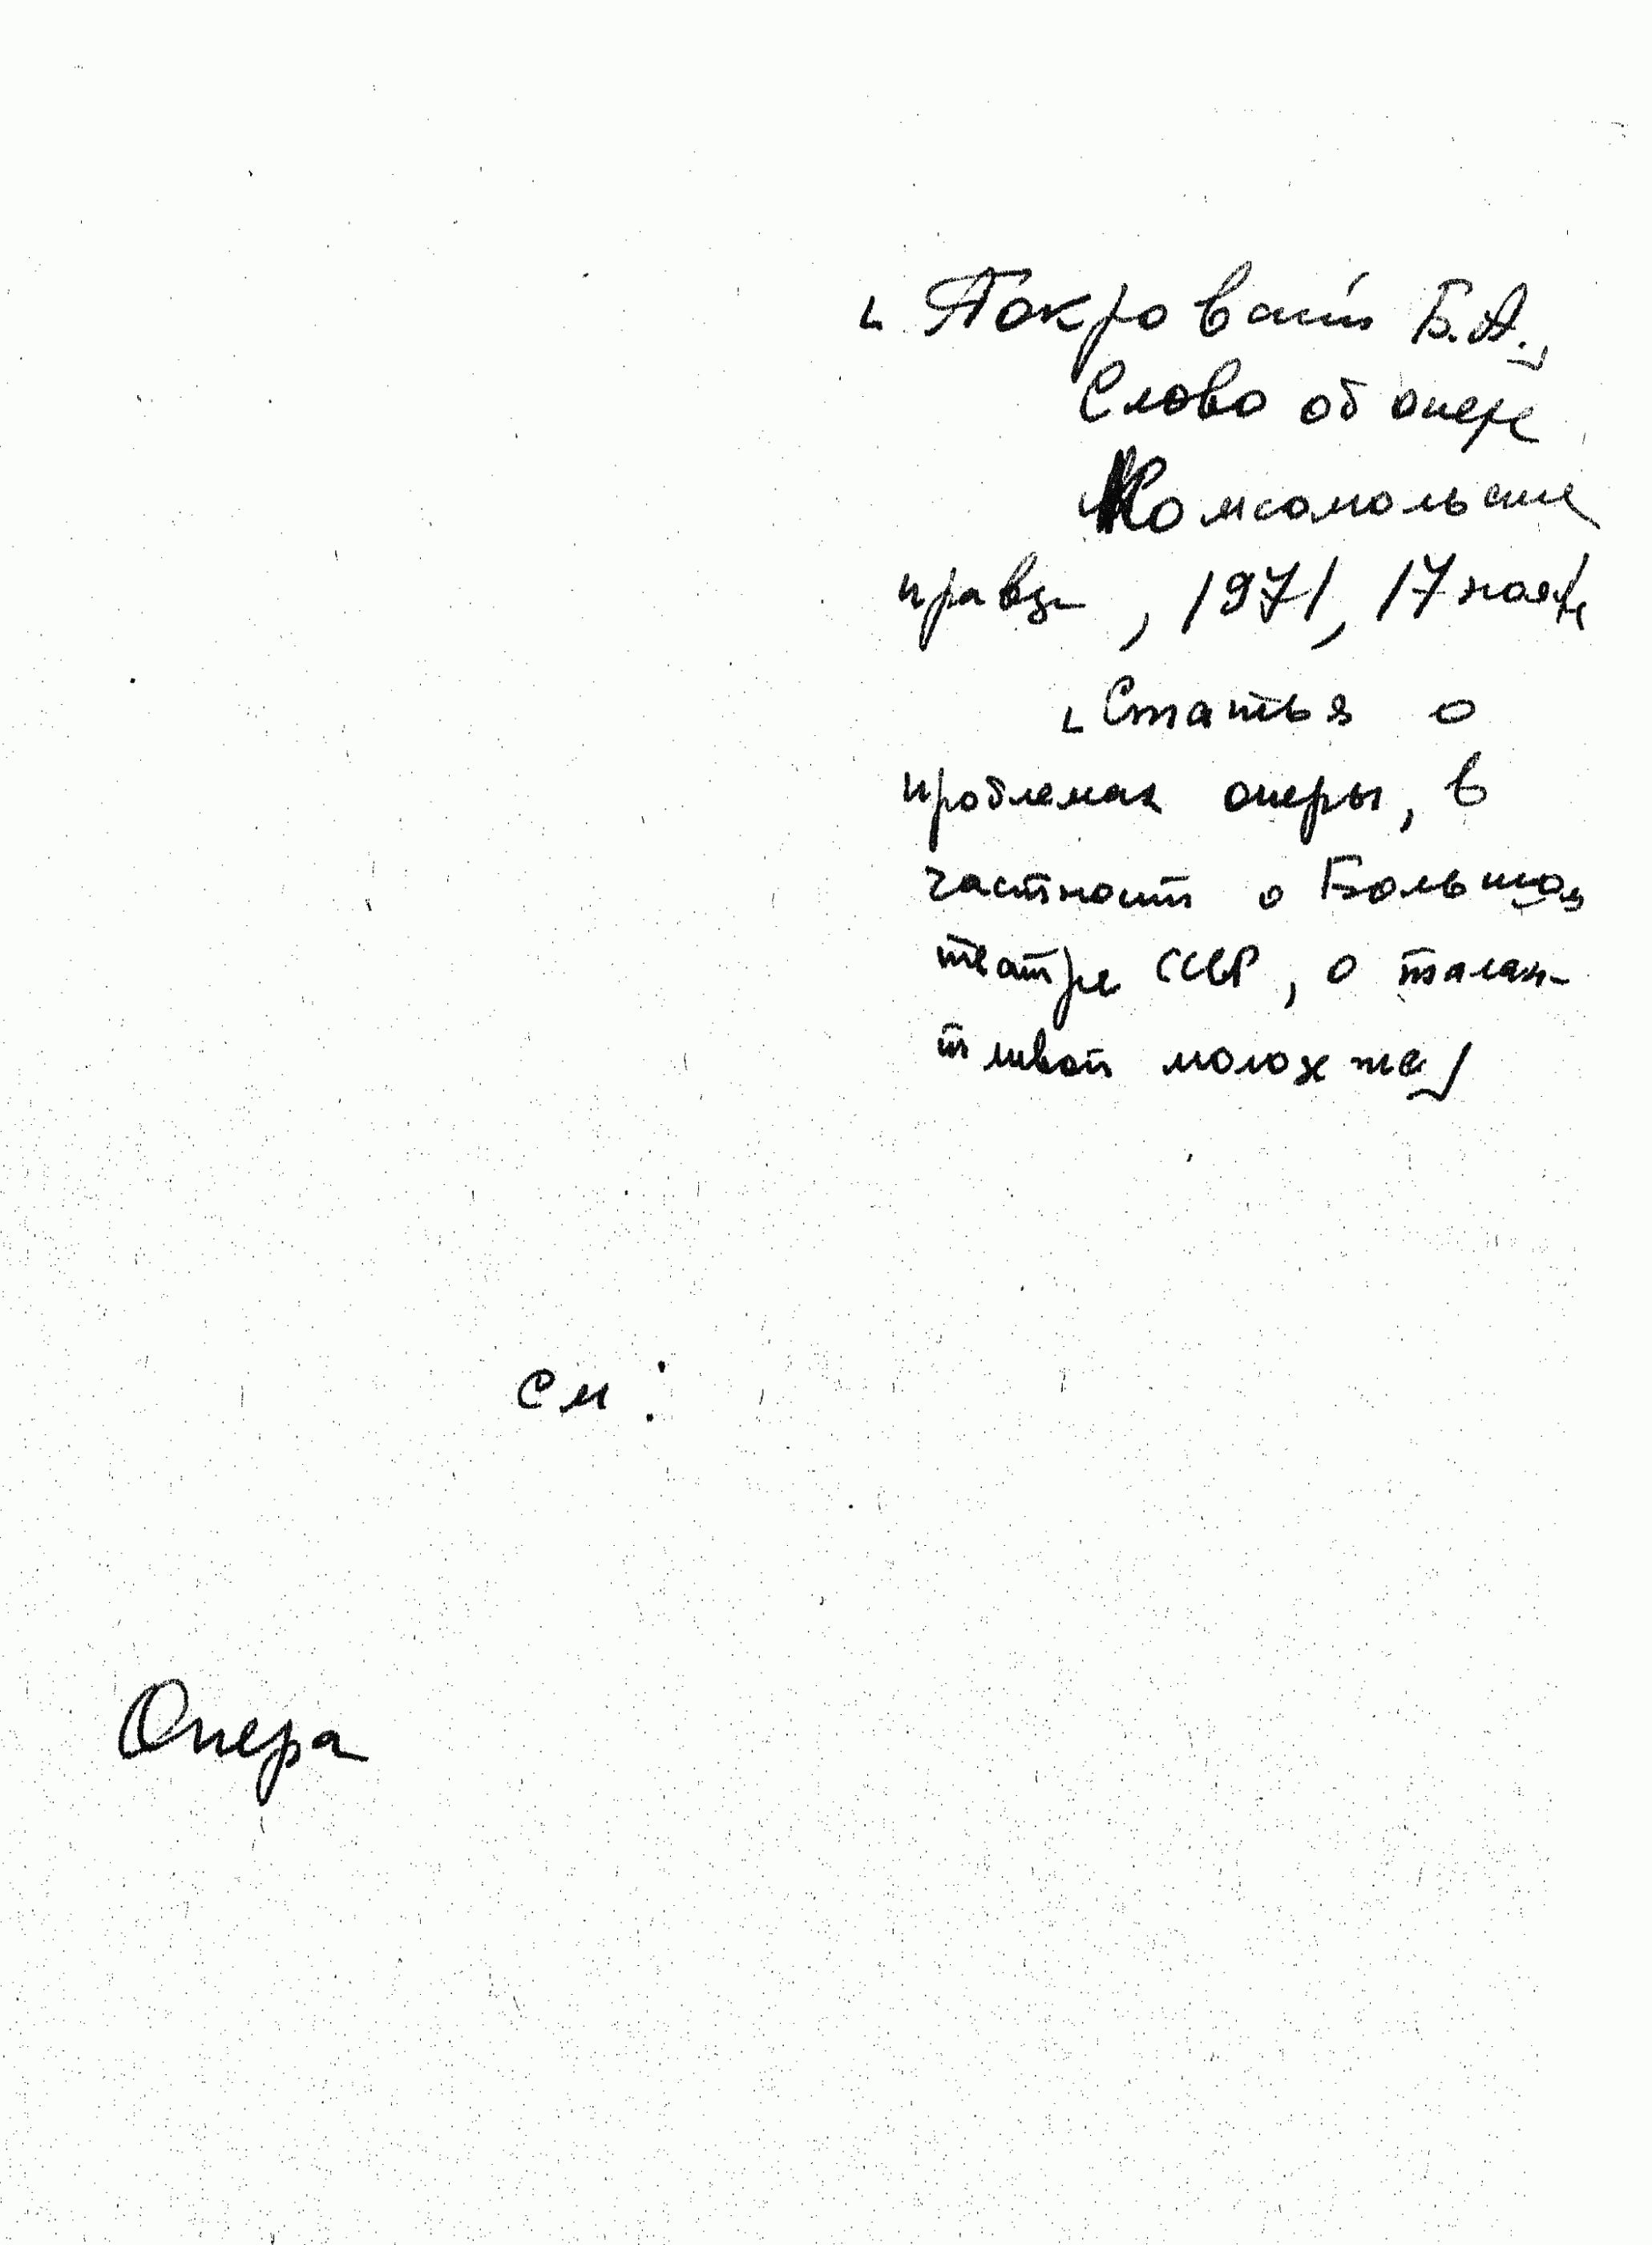 Покровский Б.А.,
Слово об опере
Комсомольская
правда, 1971, 17 ноября
Статья о
проблемах оперы, в
частности о Большом
театре СССР, о талан-
тливой молодежи
см:
Опера